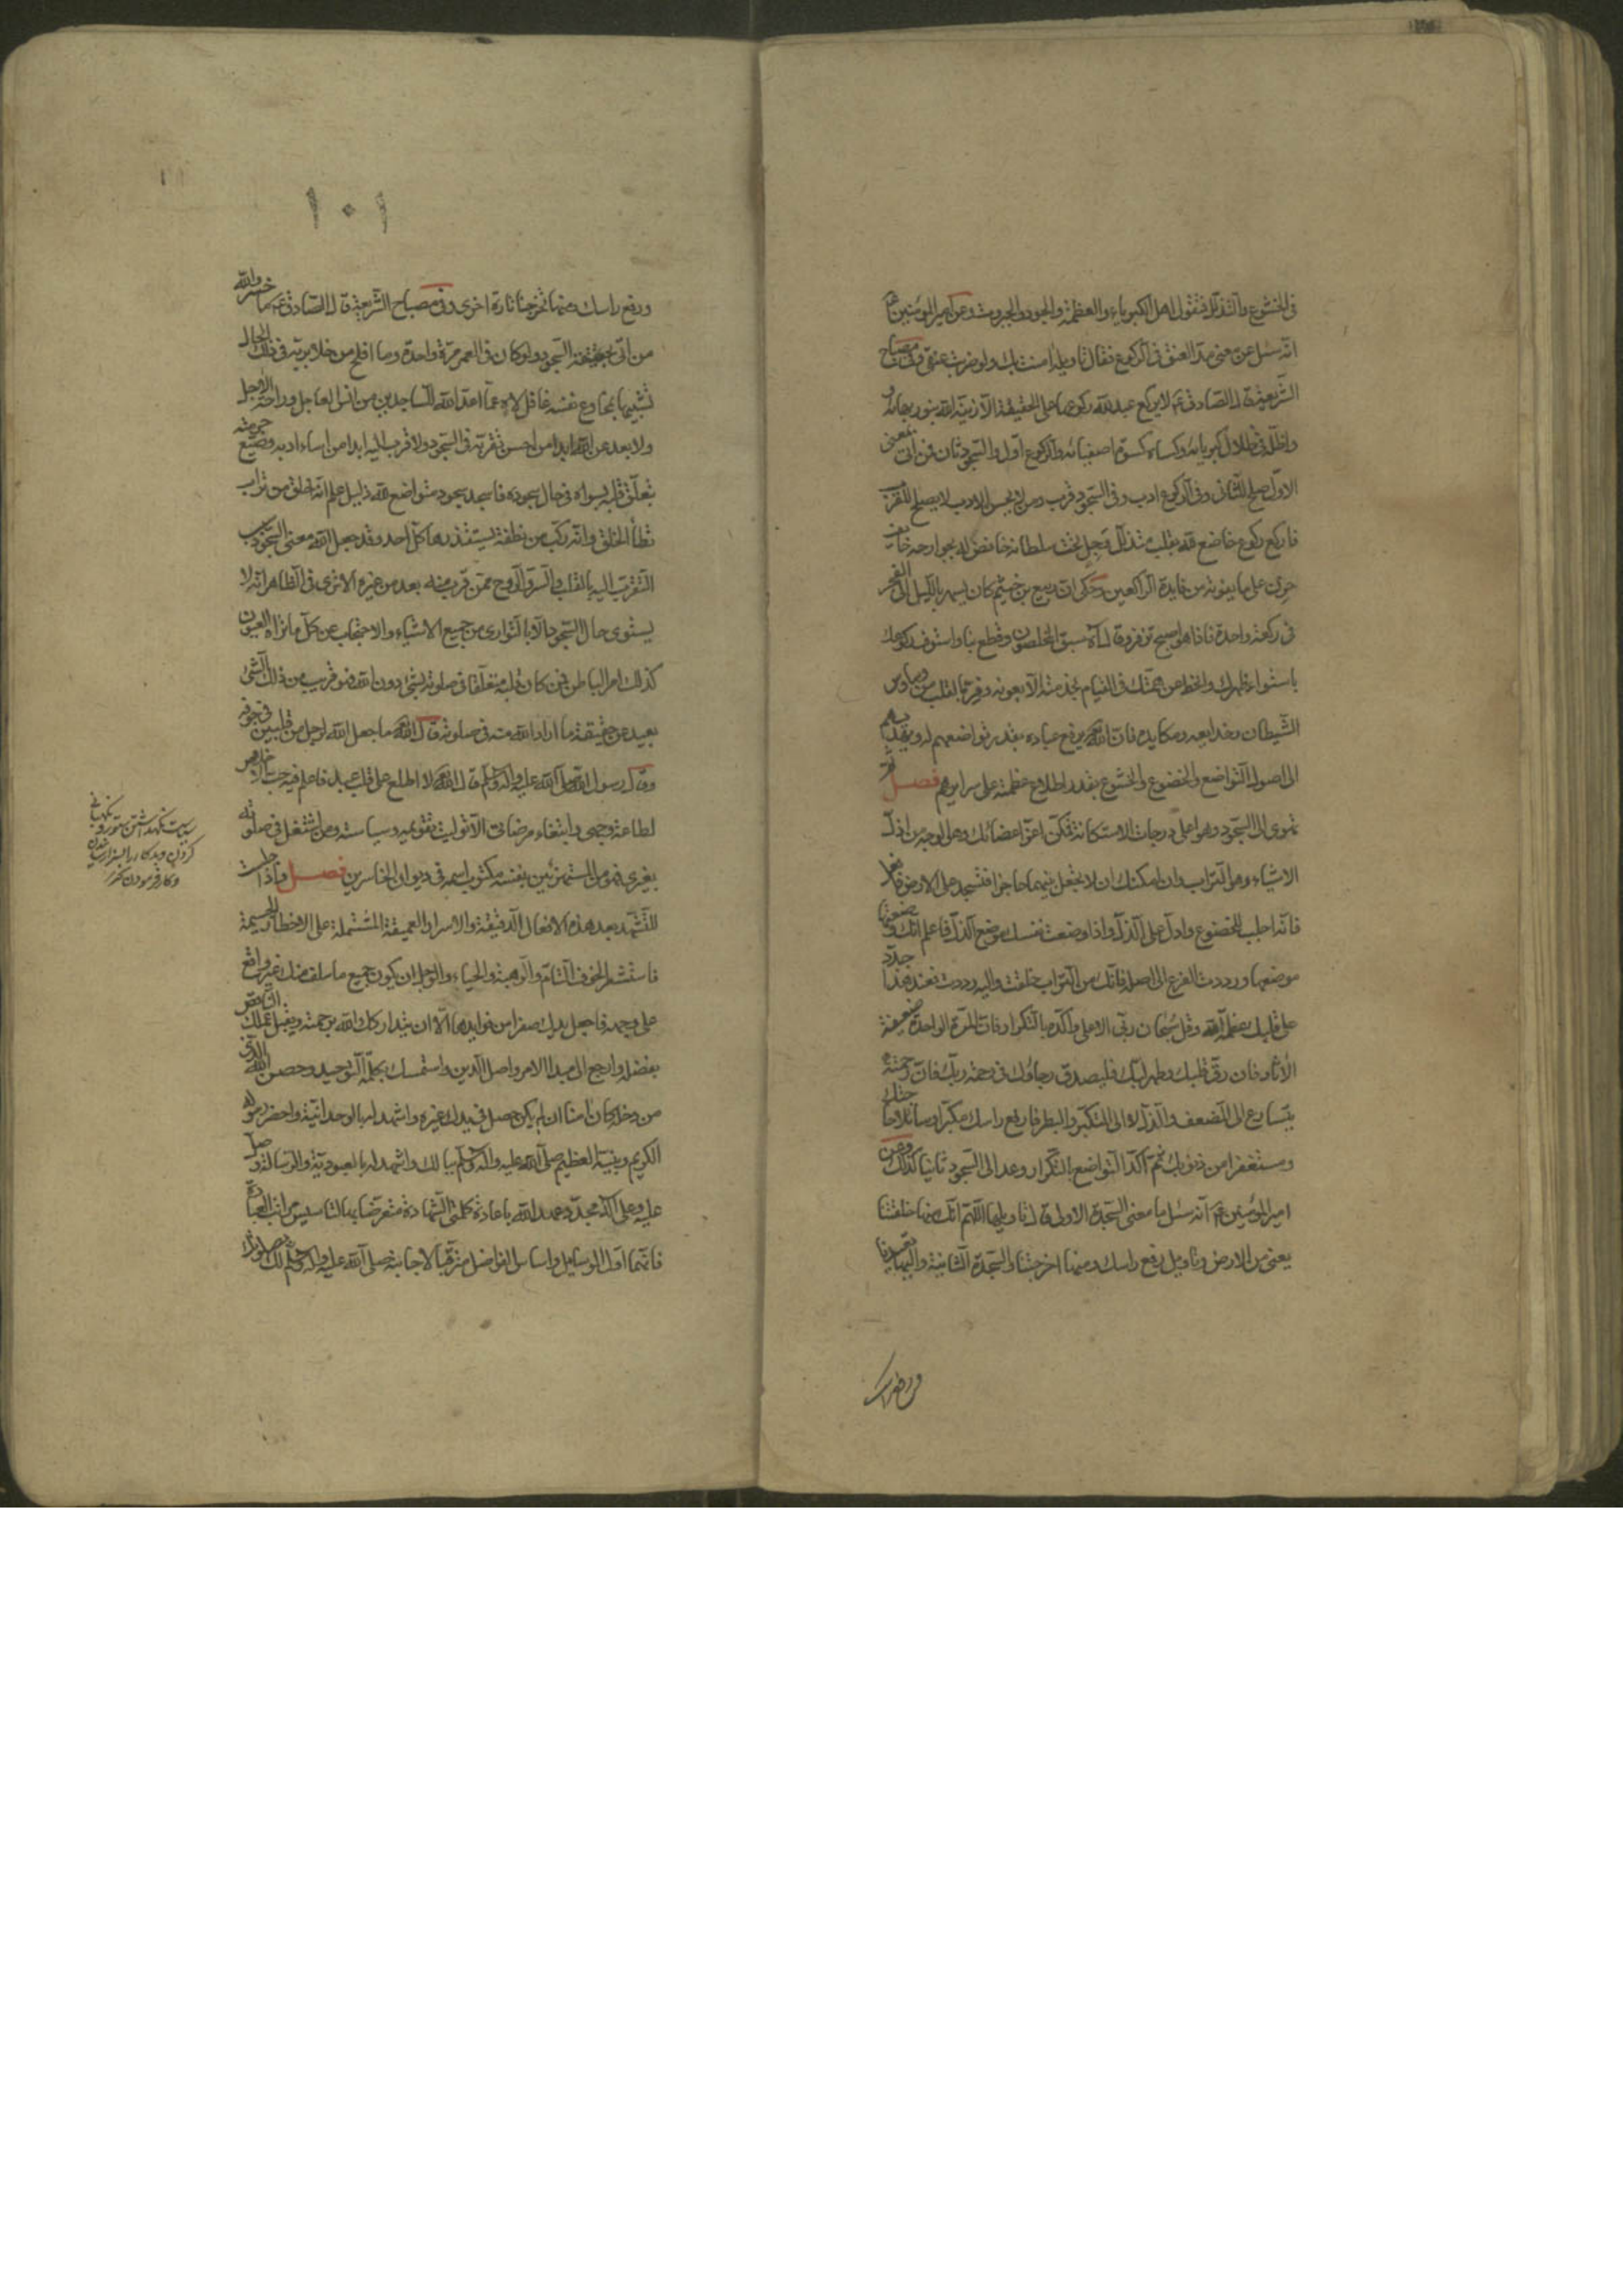 فى الخشوع والتذلل فتقول اهل الكبرياء والعظمة والجود والجبروت وعن امير المؤمنين ع
انه سئل عن معنى مد العنق فى الركوع فقال تاويله امنت بك ولو ضربت عنقى وفى مصباح
الشريعة قال الصادق ع لا يركع عبد لله ركوعا على الحقيقة الا زينه الله بنور بهائه و
واظله فى ظلال كبريائه وكساه كسوة اصفيائه والركوع اول والسجود ثان فمن اتى بمعنى
الاول صلح للثانى وفى الركوع ادب وفى السجود قرب ومن لا يحسن الادب لا يصلح للقرب
فاركع ركوع خاضع لله بقلبه متذلل وجل تحت سلطانه خافض له بجوارحه خائف
حزن على ما يفوته من فايدة الراكعين وحكى ان ربيع بن خثيم كان يسهر بالليل الى الفجر
فى ركعة واحدة فاذا هو اصبح تزفر وقال آه سبق المخلصون وقطع بنا واستوف ركوعك
باستواء ظهرك وانحط عن همتك فى القيام بخدمته الا بعونه وفر بالقلب من وساوس
الشيطان وخدايعه ومكايده فان الله يرفع عباده بقدر تواضعهم له ويهديهم
الى اصول التواضع والخضوع والخشوع بقدر اطلاع عظمته على سرايرهم فصل ثم
تهوى الى السجود وهو اعلى درجات الاستكانة فمكن اعز اعضائك وهو الوجه من اذل
الاشياء وهو التراب وان امكنك ان لا تجعل بينهما حاجزا فتسجد على الارض فافعل
فانه اجلب للخضوع وادل على الذل واذا وضعت نفسك موضع الذل فاعلم انك وضعتها
موضعها ورددت الفرع الى اصله فانك من التراب خلقت واليه رددت فعند هذا جدد
على قلبك عظمة الله وقل سبحان ربى الاعلى واكده بالتكرار فان المرة الواحدة ضعيفة
الآثار فان رق قلبك وطهر لبك فليصدق رجاؤك فى رحمة ربك فان رحمته
يتسارع الى التضعف والذل لا الى التكبر والبطر فارفع راسك مكبرا وسائلا حاجتك
ومستغفرا من ذنوبك ثم اكد التواضع بالتكرار وعد الى السجود ثانيا كذلك وعن
امير المؤمنين ع انه سئل ما معنى السجدة الاولى قال تاويلها اللهم انك منها خلقتنا
يعنى من الارض وتاويل رفع راسك ومنها اخرجتنا والسجدة الثانية واليها تعيدنا
ورفع راسك
١٠١
ورفع راسك ومنها تخرجنا تارة اخرى وفى مصباح الشريعة قال الصادق ع ما خسر والله
من اتى بحقيقة السجود ولو كان فى العمر مرة واحدة وما افلح من خلا بربه فى ذلك الحال
تشبيها بمخادع نفسه غافل لاه عما اعد الله للساجدين من انس العاجل وراحة الاجل
ولا بعد عن الله ابدا من احسن تقربه فى السجود ولا قرب اليه ابدا من اساء ادبه وضيع حرمته
بتعلق قلبه بسواه فى حال سجوده فاسجد سجود متواضع لله ذليل علم انه خلق من تراب
تطأ الخلق وانه ركب من نطفة يستقذرها كل احد وقد جعل الله معنى السجود سبب
التقرب اليه بالقلب والسر والروح فمن قرب منه بعد من غيره الا ترى فى الظاهر انه لا
يستوى حال السجود الا بالتوارى من جميع الاشياء والاحتجاب عن كل ما تراه العيون
كذلك امر الباطن فمن كان قلبه متعلقا فى صلوته بشئ دون الله فهو قريب من ذلك الشئ
بعيد عن حقيقة ما اراد الله منه فى صلوته قال الله ما جعل الله لرجل من قلبين فى جوفه
وقال رسول الله صلى الله عليه وآله وسلم قال الله لا اطلع على قلب عبد فاعلم فيه حب الاخلاص
لطاعة وجهى وابتغاء مرضاتى الا توليت تقويمه وسياسته ومن اشتغل فى صلوته
بغيرى فهو من المستهزئين بنفسه مكتوب اسمه فى ديوان الخاسرين فصل فاذا جلست
للتشهد بعد هذه الافعال الدقيقة والاسرار العميقة المشتملة على الاخطار الجسيمة
فاستشعر الخوف التام والرهبة والحياء والوجل ان يكون جميع ما سلف منك غير واقع
على وجهه فاجعل يدك صفرا من فوايدها الا ان يتداركك الله برحمته ويقبل عملك الناقص
بفضله وارجع الى مبدا الامر واصل الدين واستمسك بكلمة التوحيد وحصن الله الذى
من دخله كان امنا ان لم يكن حصل فى يدك غيره واشهد له بالوحدانية واحضر رسوله
الكريم ونبيه العظيم صلى الله عليه وآله وسلم ببالك واشهد له بالعبودية والرسالة وصل
عليه وعلى آله مجددا عهد الله باعادة كلمتى الشهادة متعرضا بهما لتاسيس مراتب العبادة
فانهما اول الوسايل واساس الفواضل مترقبا لاجابته صلى الله عليه وآله وسلم لك بصلوتك
سياست نگهداشتن ستور و نگهبانى
كردن
وكار فرمودن